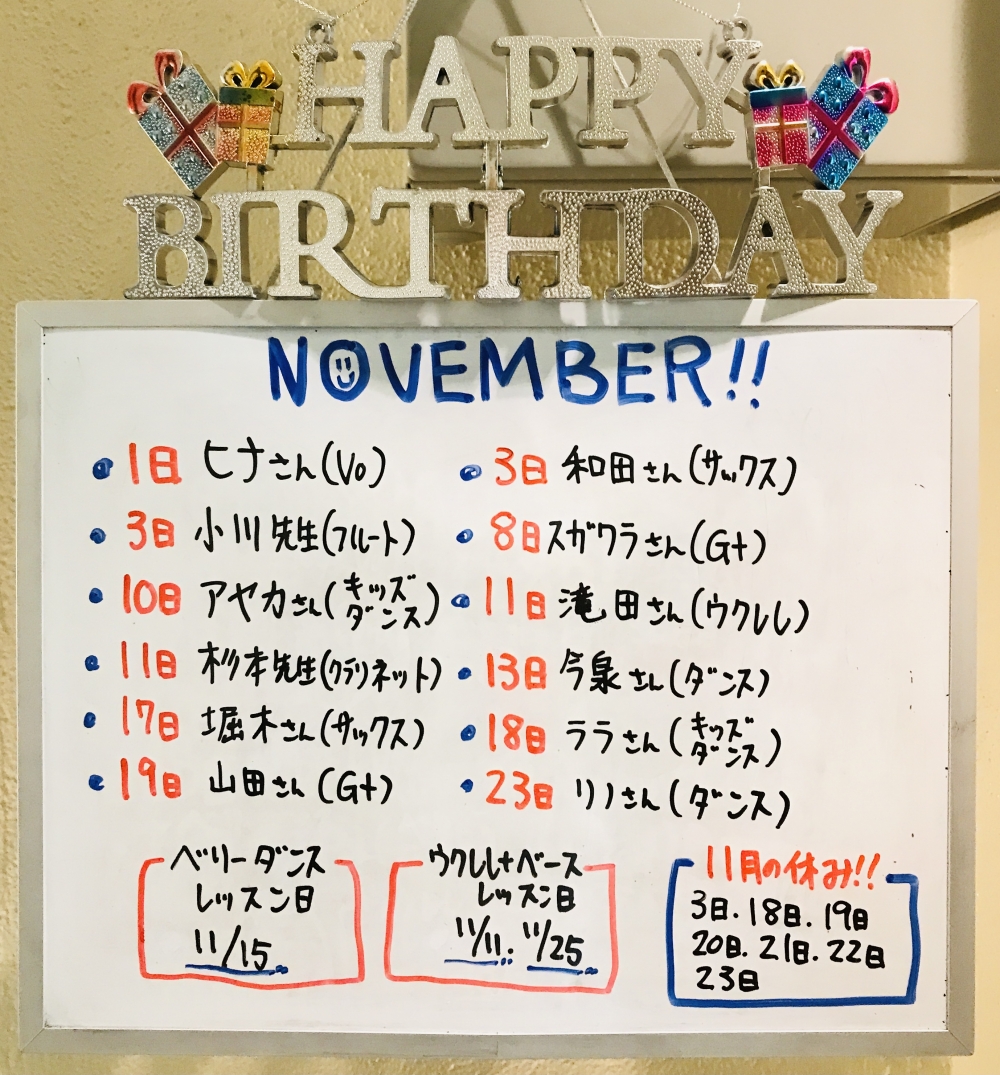 HAPPY
BIRTHDAY
NOVEMBER!!
• 1日 ヒナさん(Vo)
• 3日 和田さん(サックス)
• 3日 小川先生(フルート)
• 8日 スガワラさん(Gt)
• 10日 アヤカさん(キッズダンス)
• 11日 滝田さん(ウクレレ)
• 11日 杉本先生(クラリネット)
• 13日 今泉さん(ダンス)
• 17日 堀木さん(サックス)
• 18日 ララさん(キッズダンス)
• 19日 山田さん(Gt)
• 23日 リノさん(ダンス)
ベリーダンス
レッスン日
11/15
ウクレレ+ベース
レッスン日
11/11. 11/25
11月の休み!!
3日.18日.19日
20日.21日.22日
23日